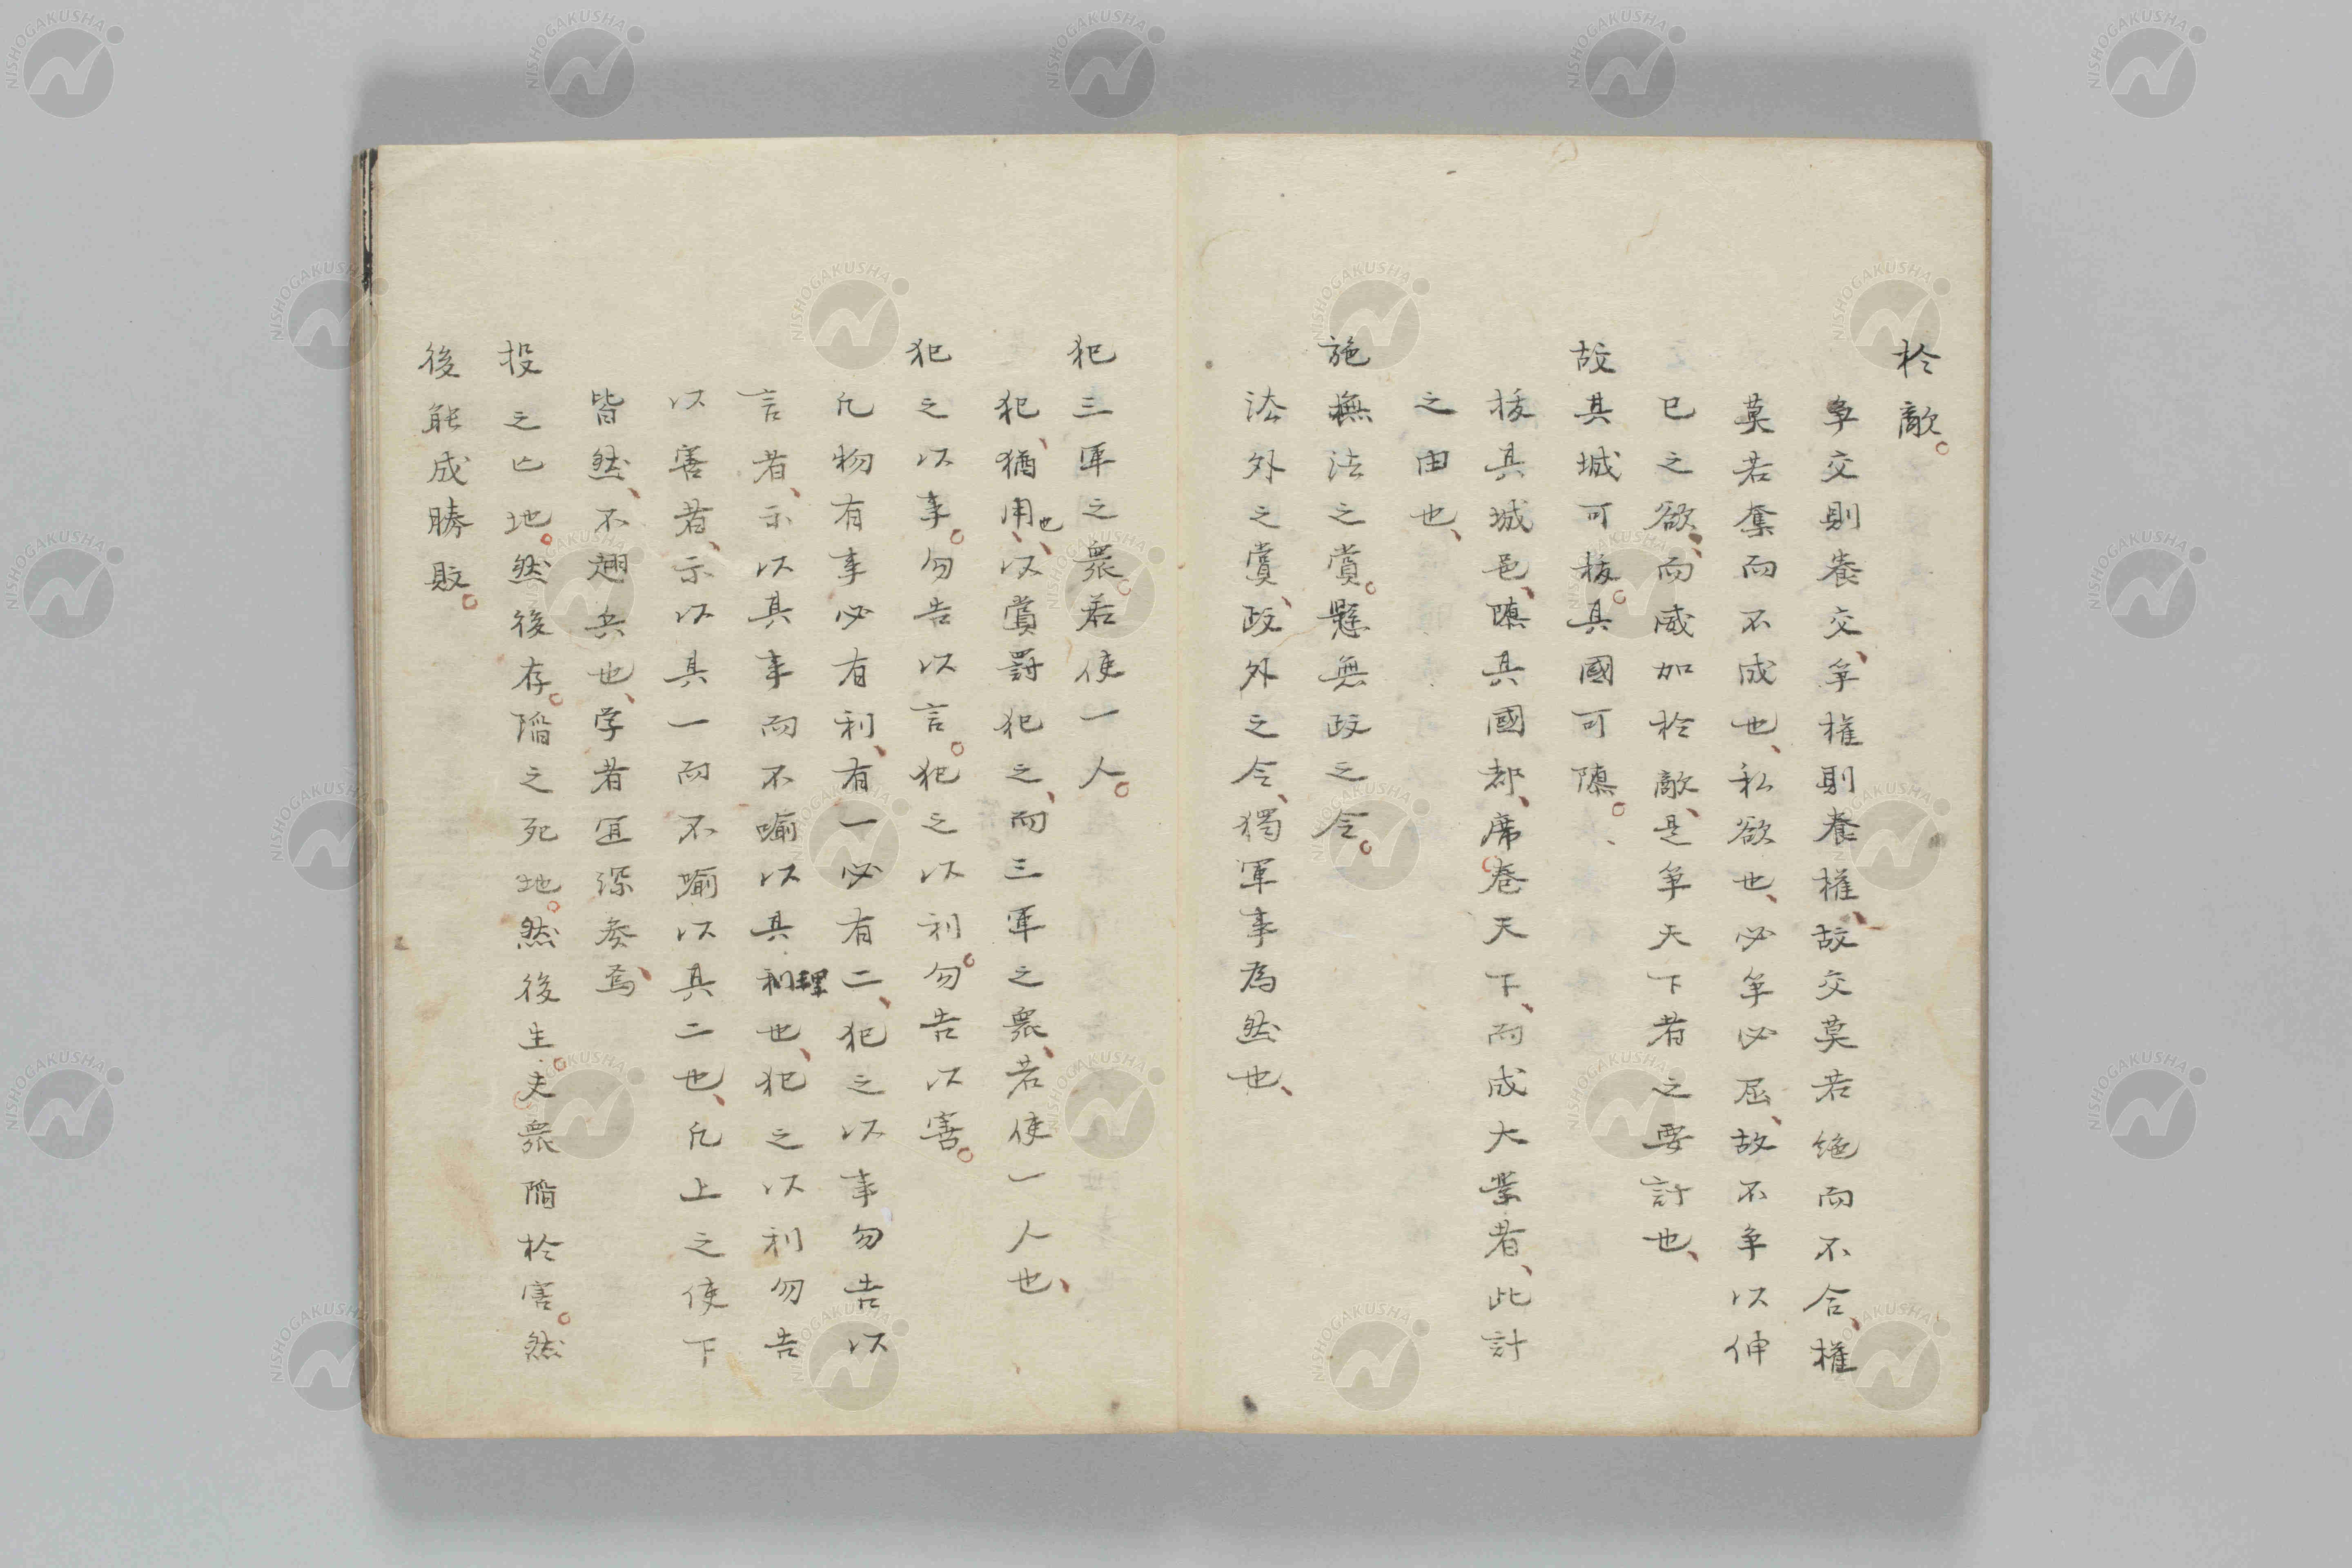 於敵。
争交則養交、争権則養権、故交莫若絶而不合、権
莫若奪而不成也、私欲也、必争必屈、故不争以伸
已之欲、而威加於敵、是争天下者之要計也、
故其城可抜。其國可隳。
抜其城邑、隳其國都、席巻天下、而成大業者、此計
之由也、
施無法之賞。懸無政之令。
法外之賞、政外之令、獨軍事為然也、
犯三軍之衆。若使一人。
犯、猶用也、以賞罰犯之、而三軍之衆、若使一人也、
犯之以事。勿告以言。犯之以利。勿告以害。
凡物有事必有利、有一必有二、犯之以事勿告以
言者、示以其事而不喻以其利理也、犯之以利勿告
以害者、示以其一而不喻以其二也、凡上之使下
皆然、不翅兵也、学者宜深奏焉、
投之亡地。然後存。陷之死地。然後生。夫衆陷於害。然
後能成勝敗。
NISHOGAKUSHA